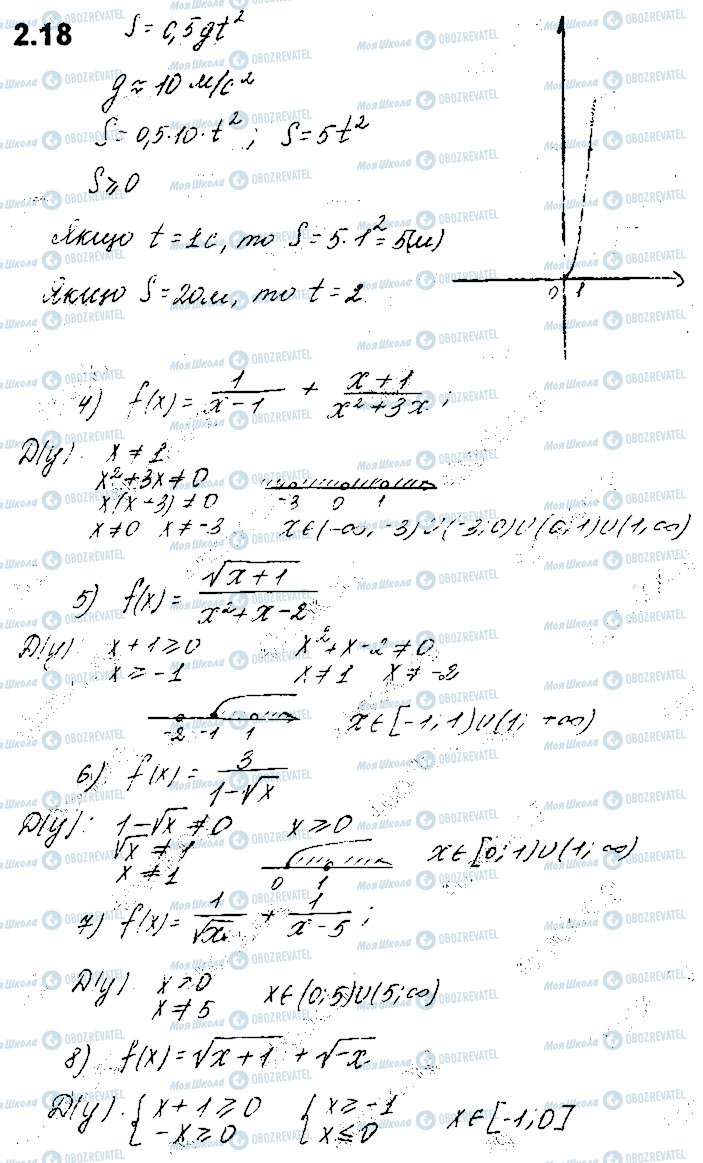 2.18
S = 0,5gt²
g ≈ 10 м/с²
S = 0,5·10·t² ; S = 5t²
S ≥ 0
Якщо t = 1с, то S = 5·1² = 5(м)
Якщо S = 20м, то t = 2
0 1
4) f(x) = 1/(x-1) + (x+1)/(x²+3x) ;
D(y) x ≠ 1
x²+3x ≠ 0
x(x+3) ≠ 0
-3 0 1
x ≠ 0 x ≠ -3 x ∈ (-∞; -3)∪(-3; 0)∪(0; 1)∪(1; ∞)
5) f(x) = √(x+1)/(x²+x-2)
D(y) x+1 ≥ 0 x²+x-2 ≠ 0
x ≥ -1 x ≠ 1 x ≠ -2
-2 -1 1 x ∈ [-1; 1)∪(1; +∞)
6) f(x) = 3/(1-√x)
D(y): 1-√x ≠ 0 x ≥ 0
√x ≠ 1 x ∈ [0; 1)∪(1; ∞)
x ≠ 1 0 1
7) f(x) = 1/√x + 1/(x-5) ;
D(y) x > 0
x ≠ 5 x ∈ (0; 5)∪(5; ∞)
8) f(x) = √(x+1) + √(-x)
D(y): { x+1 ≥ 0 { x ≥ -1 x ∈ [-1; 0]
-x ≥ 0 x ≤ 0
МояШкола OBOZREVATEL